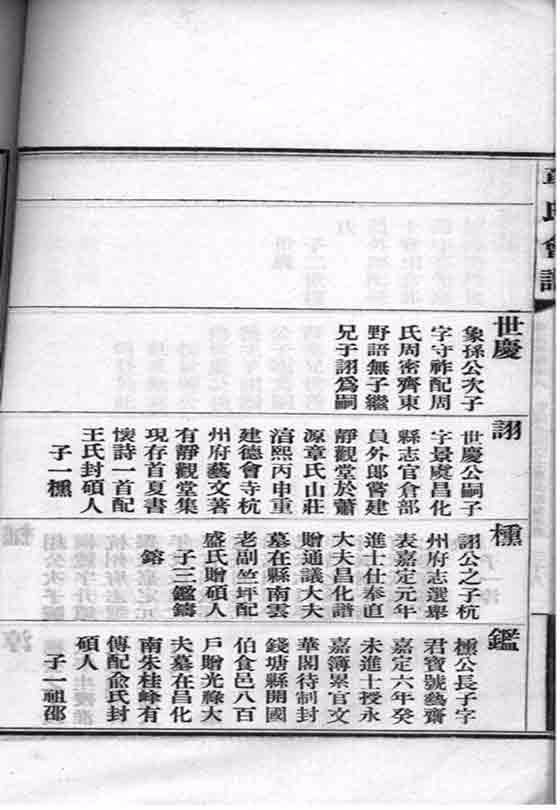 章氏會譜
世慶
象孫公次子
字守祚配周
氏周密齊東
野語無子繼
兄子詡爲嗣
詡
世慶公嗣子
字景虞昌化
縣志官倉部
員外郎嘗建
靜觀堂於蕭
源章氏山莊
淳熙丙申重
建德會寺杭
州府藝文著
有靜觀堂集
現存首夏書
懷詩一首配
王氏封碩人
子一櫄
櫄
詡公之子杭
州府志選舉
表嘉定元年
進士仕奉直
大夫昌化譜
贈通議大夫
墓在縣南雲
老副竺坪配
盛氏贈碩人
子三鑑鑄
鎔
鑑
櫄公長子字
君寶號藝齋
嘉定六年癸
未進士授永
嘉簿累官文
華閣待制封
錢塘縣開國
伯食邑八百
戶贈光祿大
夫墓在昌化
南朱桂峰有
傳配俞氏封
碩人
子一祖邵